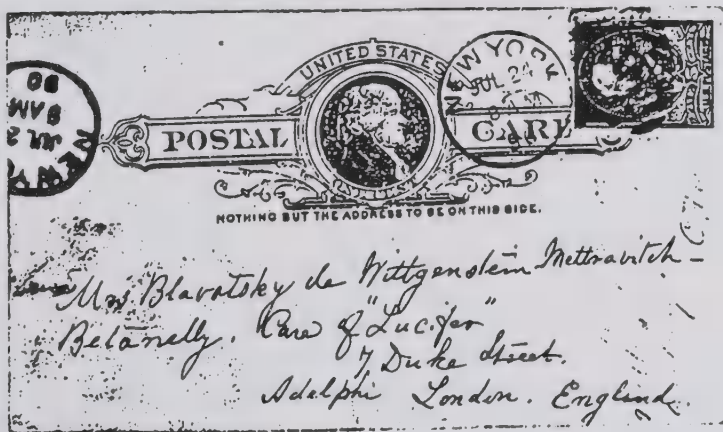 UNITED STATES
POSTAL CARD
NEW YORK
JUL 24
NEW YO
JUL 2
8 AM
90
NOTHING BUT THE ADDRESS TO BE ON THIS SIDE.
Mrs Blavatsky de Wittgenstein Mettravitch-
Belanelly. Care of "Lucifer"
7 Duke Street.
Adelphi London. England.